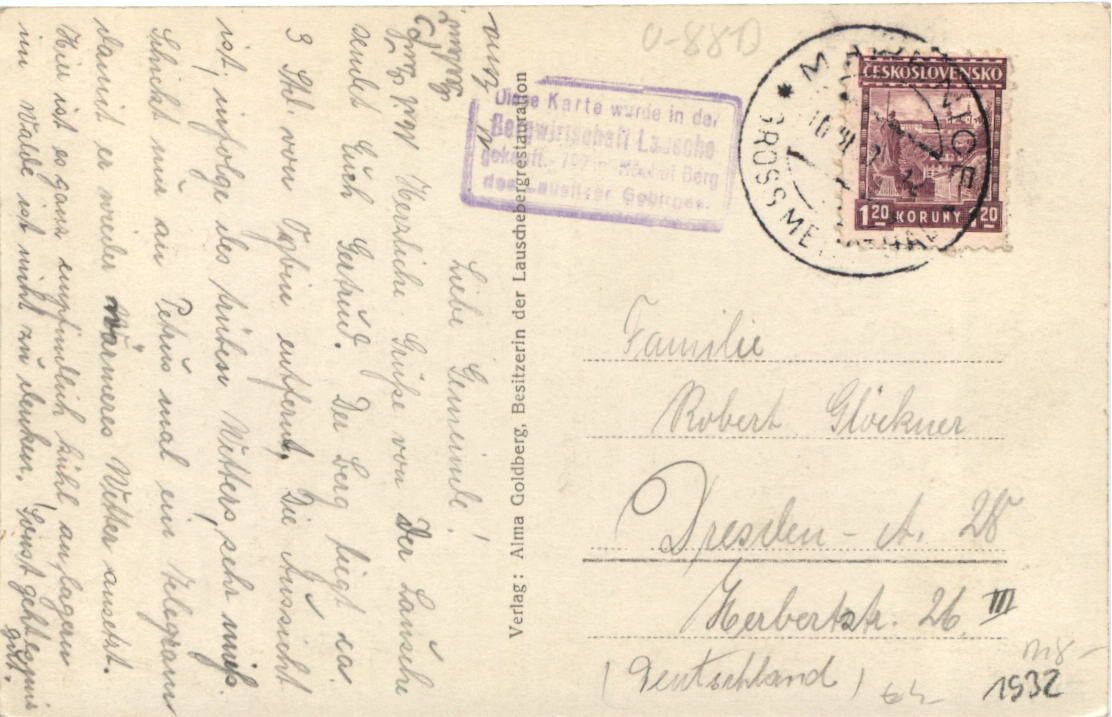 Liebe Gemeinde!
Herzliche Grüße von der Lausche
sendet Euch Gertrud. Der Berg liegt ca.
3 Std. von Oybin entfernt. Die Aussicht
ist, infolge des trüben Wetters, sehr mies.
Schickt mir an Petrus mal ein Telegram
damit er wieder wärmeres Wetter ansetzt.
Hier ist es ganz empfindlich kühl, an lagern
im Walde ist nicht zu denken. Sonst geht es mir
gut.
Verlag: Alma Goldberg, Besitzerin der Lauschebergrestauration
Diese Karte wurde in der
Bergwirtschaft Lausche
gekauft. - Höchst Berg
des Lausitzer Gebirges.
U-88D
ČESKOSLOVENSKO
1.20 KORUNY 1.20
GROSS
Familie
Robert Glöckner
Dresden-A. 28
Herbertstr. 26 III
(Deutschland)
1932